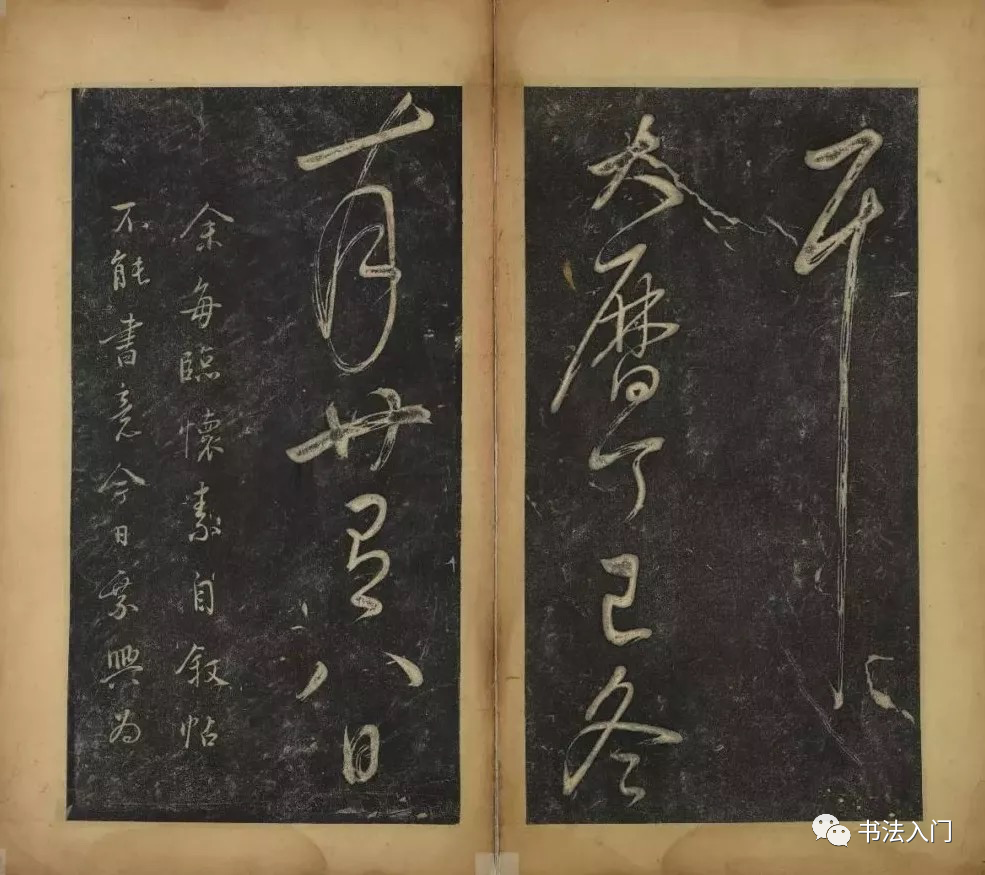 耳
大曆丁巳冬
十月廿有八日
余每臨懷素自叙帖
不能書竟今日乘興為
书法入门